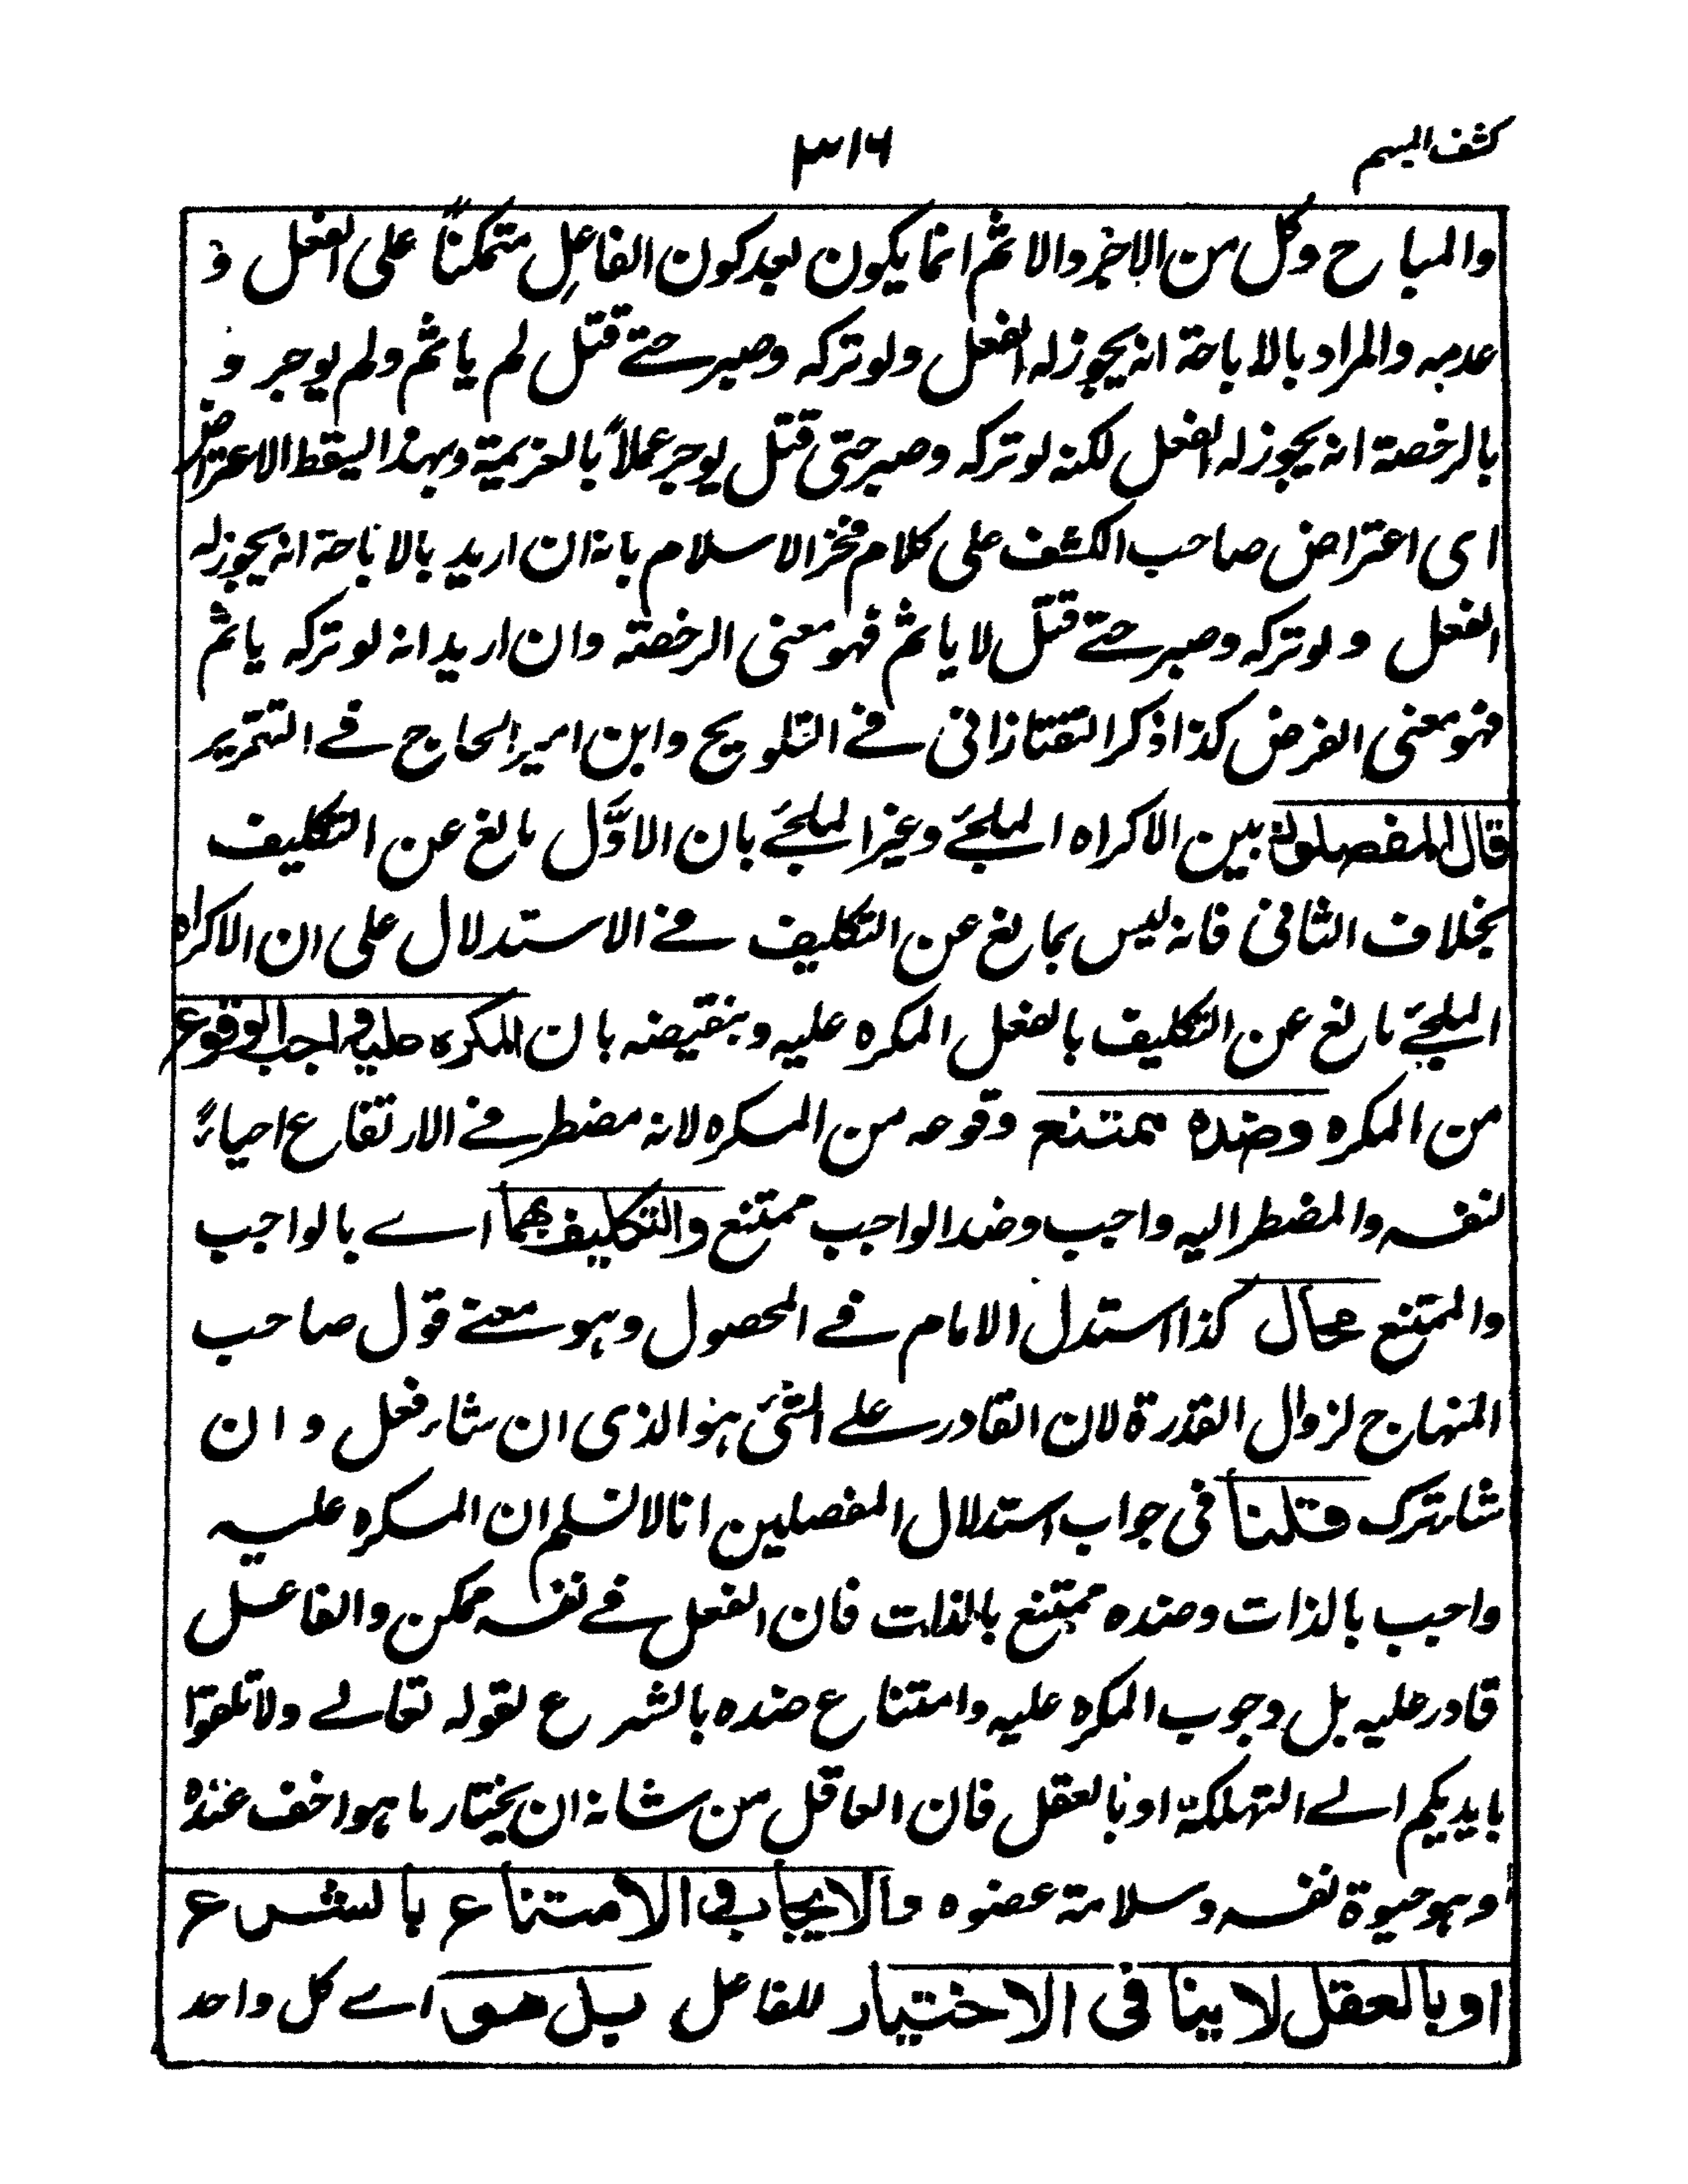 كشف المبهم
٣١٦
والمباح وكل من الاجر والاثم انما يكون بعد كون الفاعل متمكناً على الفعل و
عدمه والمراد بالاباحة انه يجوز له الفعل ولو تركه وصبر حتے قتل لم ياثم ولم يوجر و
بالرخصة انه يجوز له الفعل لكنه لو تركه وصبر حتى قتل يوجر عملاً بالعزيمة وبهذا اليقط الاعتراض
اى اعتراض صاحب الكشف على كلام فخر الاسلام بانه ان اريد بالاباحة انه يجوز له
الفعل ولو تركه وصبر حتے قتل لا ياثم فهو معنى الرخصة وان اريد انه لو تركه ياثم
فهو معنى الفرض كذا ذكر التفتازانى فے التلويح وابن امير الحاج فے التحرير
قال المفصلون بين الاكراه الملجئ وغير الملجئ بان الاوّل مانع عن التكليف
بخلاف الثانى فانه ليس بمانع عن التكليف فے الاستدلال على ان الاكراه
الملجئ مانع عن التكليف بالفعل المكره عليه وبنقيضه بان المكره عليه واجب الوقوع
من المكره وضده يمتنع وقوعه من المكره لانه مضطر فے الارتفاع احياءً
لنفسه والمضطر اليه واجب وضد الواجب ممتنع والتكليف بهما اے بالواجب
والممتنع محال كذا استدل الامام فے المحصول وهو معنے قول صاحب
المنهاج لزوال القدرة لان القادر علے الشئ هو الذى ان شاء فعل وان
شاء ترك قلنا فى جواب استدلال المفصلين انا لا نسلم ان المكره عليه
واجب بالذات وضده ممتنع بالذات فان الفعل فے نفسه ممكن والفاعل
قادر عليه بل وجوب المكره عليه وامتناع ضده بالشرع لقوله تعالے ولا تلقوا
بايديكم الے التهلكة او بالعقل فان العاقل من شانه ان يختار ما هو اخف عنده
وهو حيوة نفسه وسلامة عضوه والايجاب فى الامتناع بالشرع
او بالعقل لا ينافى الاختيار للفاعل بل هو اے كل واحد